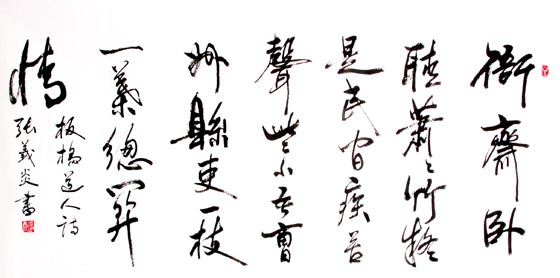 衙齋卧
聽蕭々竹疑
是民间疾苦
聲些小吾曹
州縣吏一枝
一葉總関
情
板橋道人詩
張義炎書